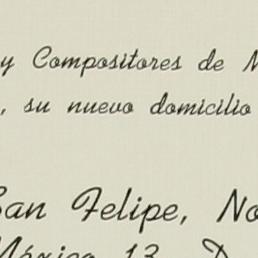 y Compositores de
, su nuevo domicilio
San Felipe, No
México 13, D